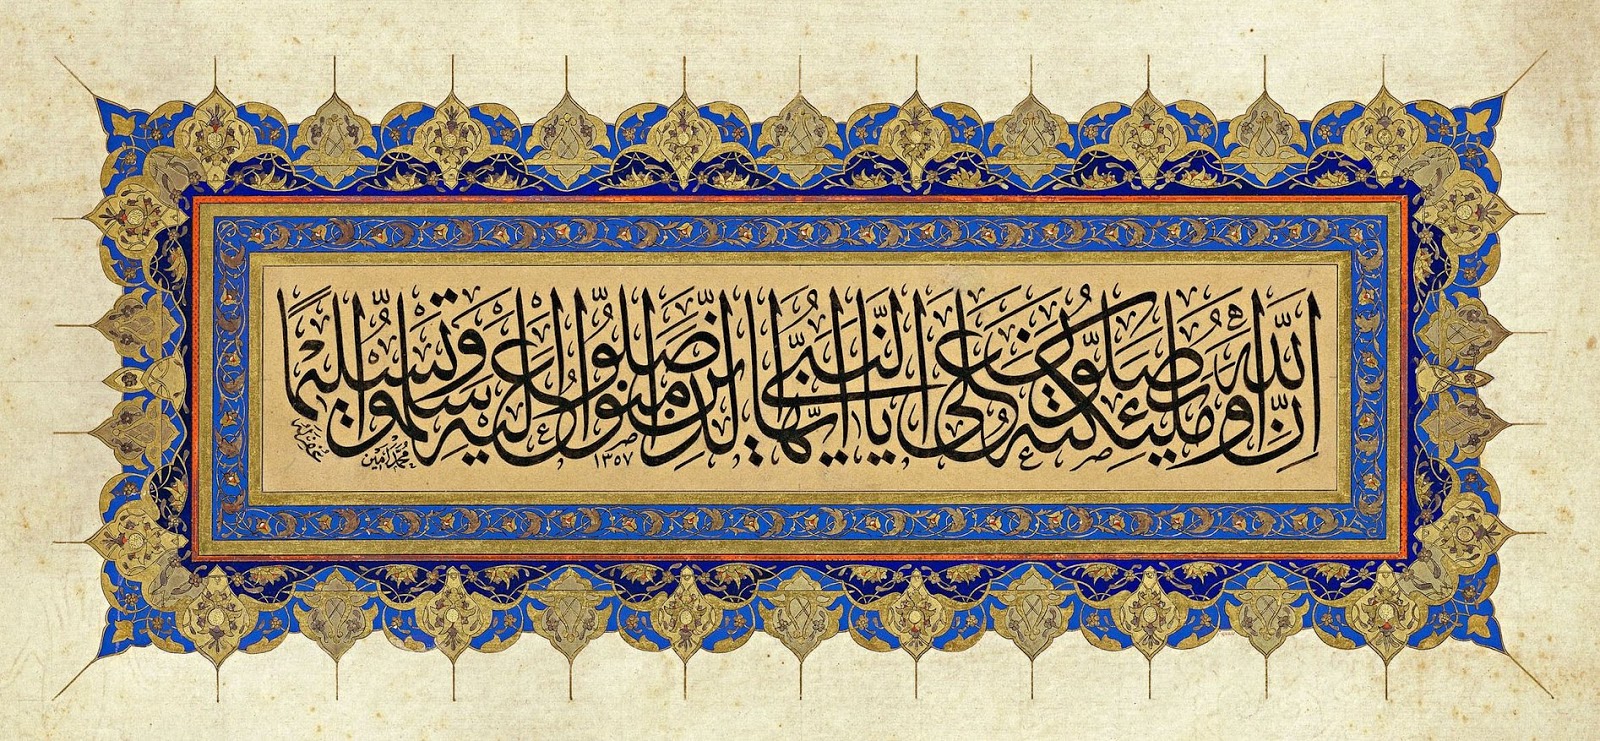 اِنَّ اللّٰهَ وَمَلٰئِكَتَهُ يُصَلُّونَ عَلَى النَّبِيِّ يَا اَيُّهَا الَّذِينَ اٰمَنُوا صَلُّوا عَلَيْهِ وَسَلِّمُوا تَسْلِيمًا
١٣٥٧
محمد امين
غفر له